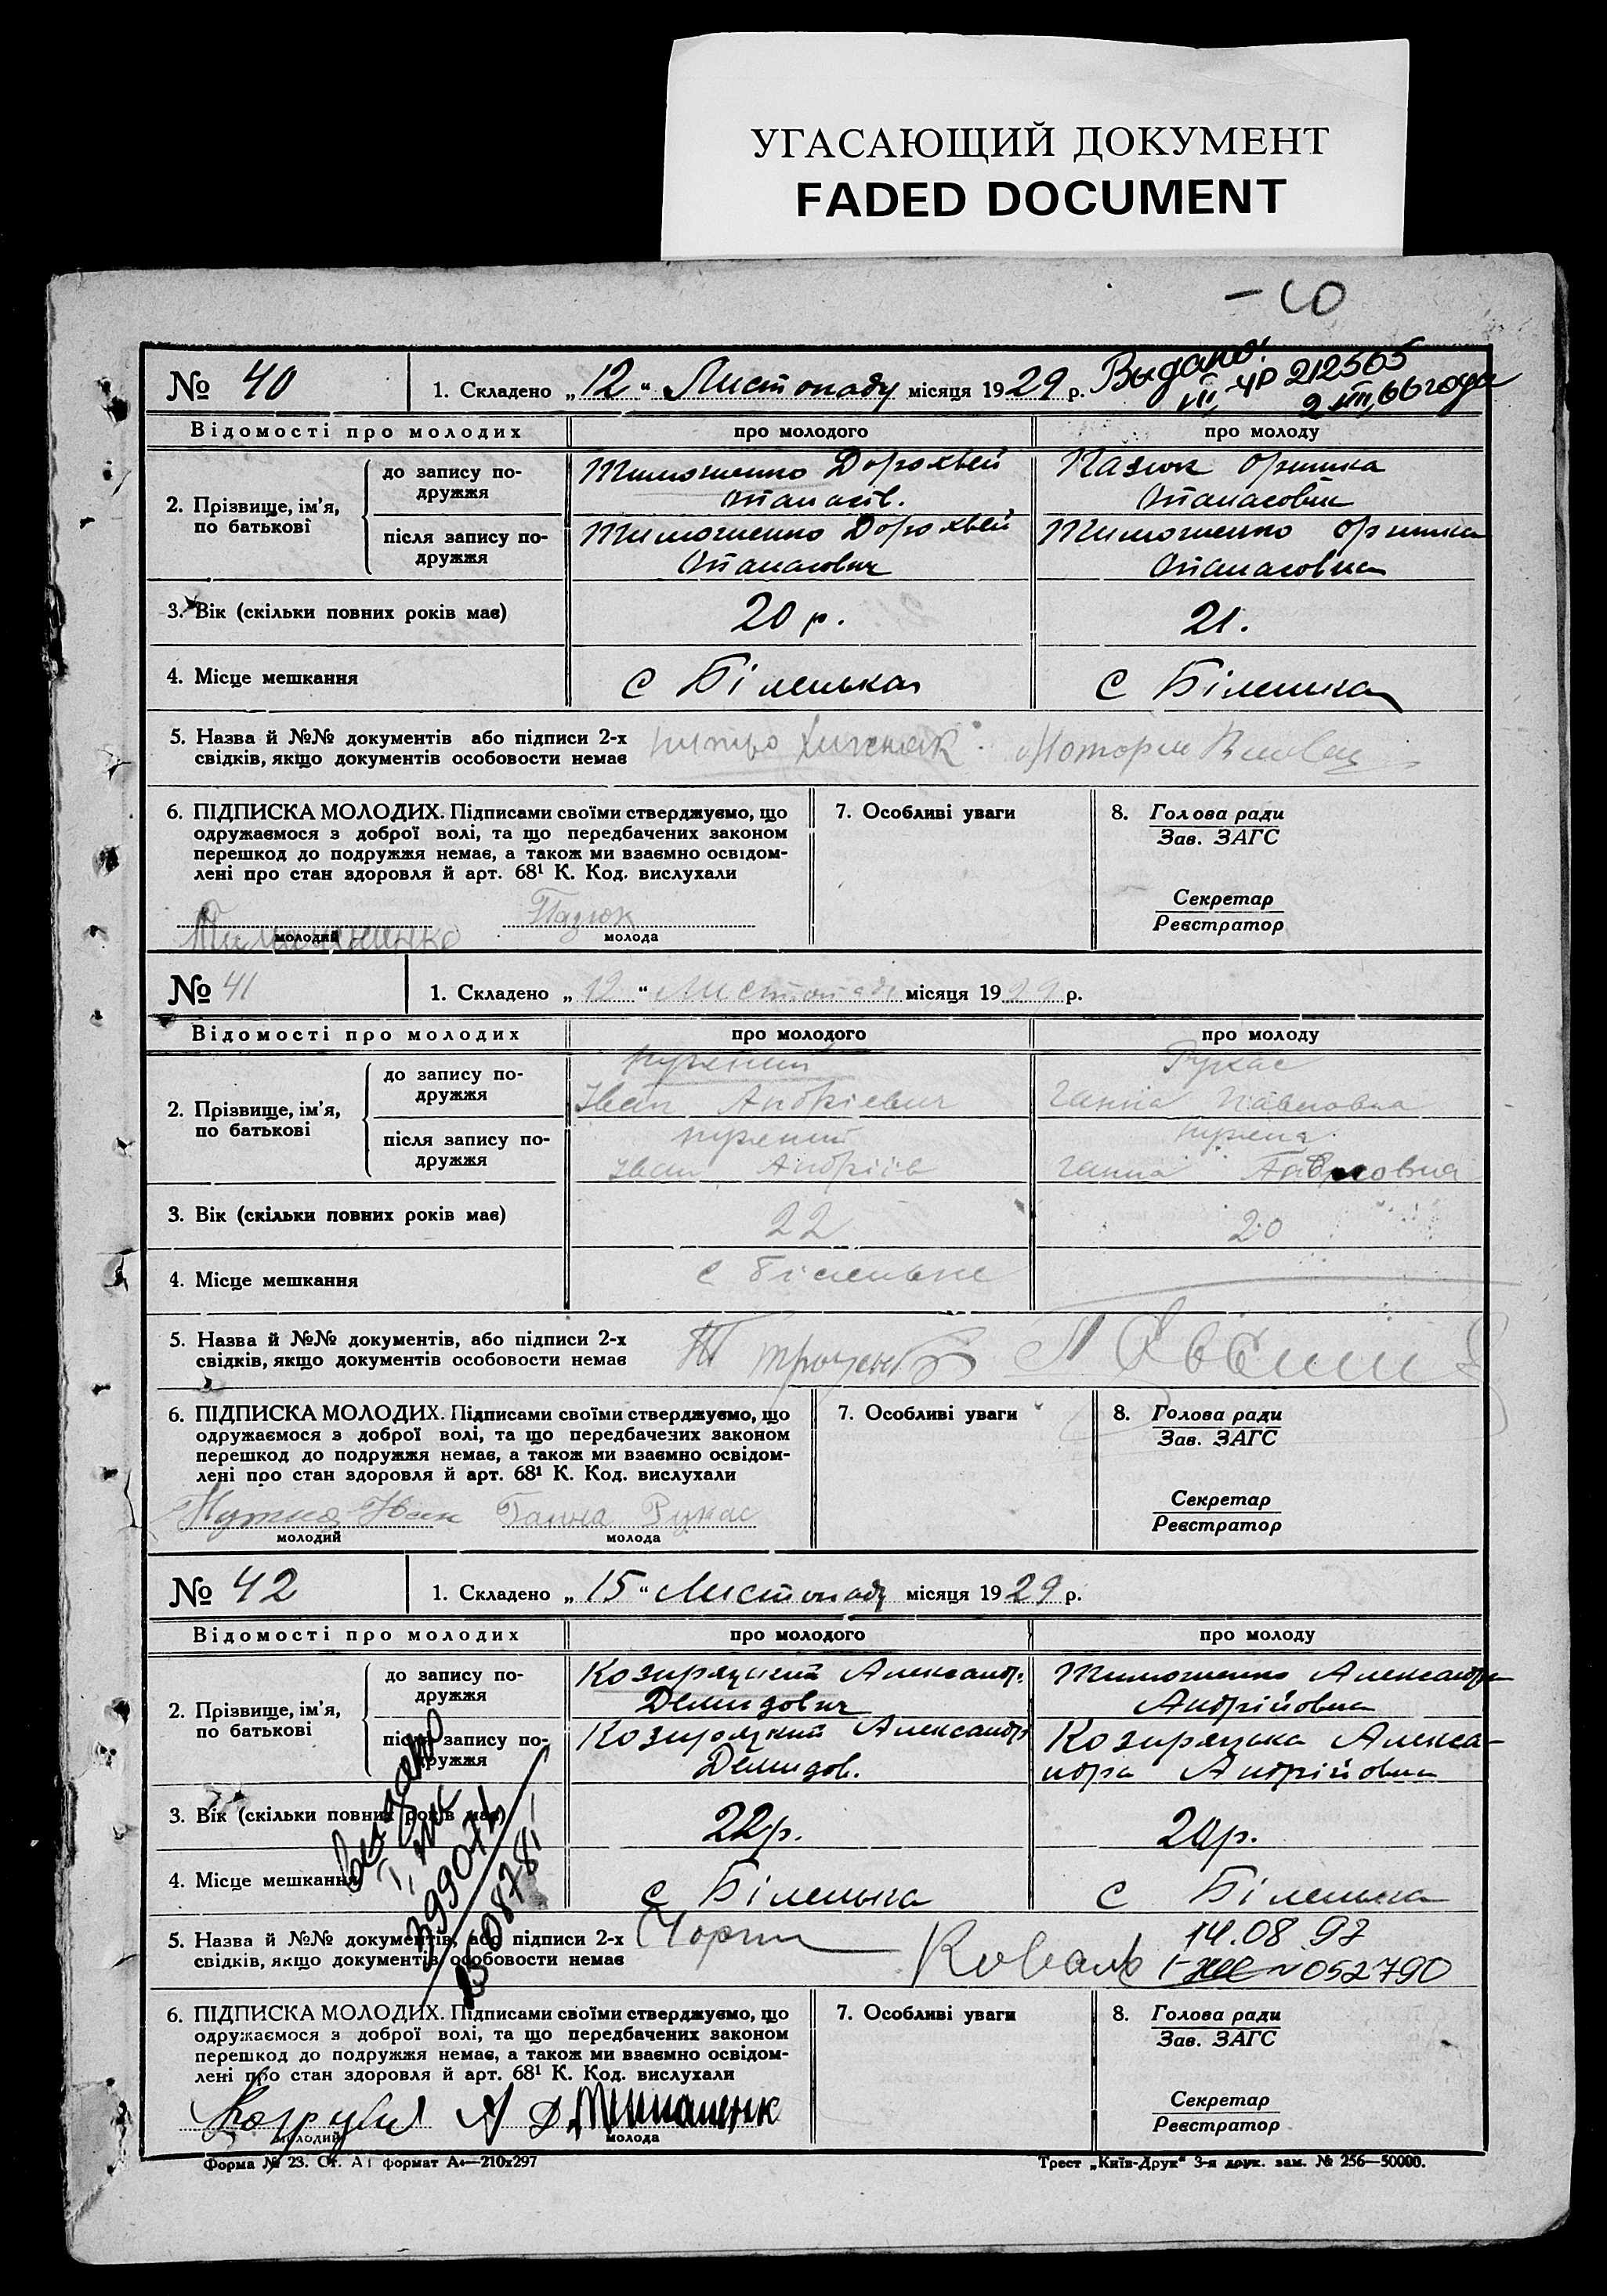 УГАСАЮЩИЙ ДОКУМЕНТ
FADED DOCUMENT
№ 40
1. Складено „12“ Листопаду місяця 1929 р.
Выдано:
212565
2 VIII, 66 года
Відомості про молодих
про молодого
про молоду
2. Прізвище, ім’я,
по батькові
до запису по-
дружжя
Тимошенко Дорохвей
Опанасів.
Пазюк Оришка
Опанасовна
після запису по-
дружжя
Тимошенко Дорохвей
Опанасович
Тимошенко Оришка
Опанасовна
3. Вік (скільки повних років має)
20 р.
21.
4. Місце мешкання
с Біленька
с Біленька
5. Назва й №№ документів або підписи 2-х
свідків, якщо документів особовости немає
6. ПІДПИСКА МОЛОДИХ. Підписами своїми стверджуємо, що
одружаємося з доброї волі, та що передбачених законом
перешкод до подружжя немає, а також ми взаємно освідом-
лені про стан здоровля й арт. 68¹ К. Код. вислухали
Пазюк
молодий
молода
7. Особливі уваги
8. Голова ради
Зав. ЗАГС
Секретар
Реєстратор
№ 41
1. Складено „12“ Листопаді місяця 1929 р.
Відомості про молодих
про молодого
про молоду
2. Прізвище, ім’я,
по батькові
до запису по-
дружжя
Іван Андріевич
Рукас
Ганна Павловна
після запису по-
дружжя
Іван Андріів
Ганна Павловна
3. Вік (скільки повних років має)
22
20
4. Місце мешкання
с Біленьке
5. Назва й №№ документів, або підписи 2-х
свідків, якщо документів особовости немає
6. ПІДПИСКА МОЛОДИХ. Підписами своїми стверджуємо, що
одружаємося з доброї волі, та що передбачених законом
перешкод до подружжя немає, а також ми взаємно освідом-
лені про стан здоровля й арт. 68¹ К. Код. вислухали
Іван Ганна Рукас
молодий
молода
7. Особливі уваги
8. Голова ради
Зав. ЗАГС
Секретар
Реєстратор
№ 42
1. Складено „15“ Листопаду місяця 1929 р.
Відомості про молодих
про молодого
про молоду
2. Прізвище, ім’я,
по батькові
до запису по-
дружжя
Козиряцкий Александр.
Демидович
Тимошенко Александра
Андрійовна
після запису по-
дружжя
Козиряцкий Александр
Демидов.
Козиряцька Алекса-
ндра Андрійовна
3. Вік (скільки повних років має)
22р.
20р.
4. Місце мешкання
с Біленька
с Біленька
5. Назва й №№ документів, або підписи 2-х
свідків, якщо документів особовости немає
Коваль
14.08 92
052790
6. ПІДПИСКА МОЛОДИХ. Підписами своїми стверджуємо, що
одружаємося з доброї волі, та що передбачених законом
перешкод до подружжя немає, а також ми взаємно освідом-
лені про стан здоровля й арт. 68¹ К. Код. вислухали
молодий
молода
7. Особливі уваги
8. Голова ради
Зав. ЗАГС
Секретар
Реєстратор
Форма № 23. Ст. А1 формат А4—210х297
Трест „Київ-Друк“ 3-я друк. зам. № 256—50000.